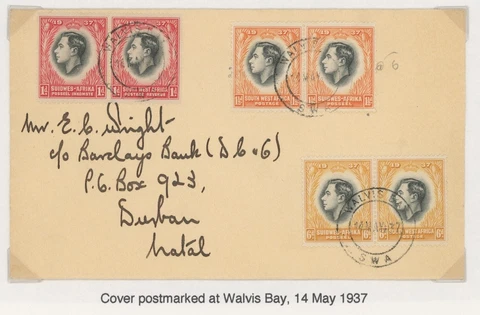 19 37
SUIDWES-AFRIKA
SOUTH WEST AFRICA
POSTAGE REVENUE
1d 1d
SOUTH WEST AFRICA
SUIDWES-AFRIKA
POSTAGE
1½d
WALVIS
SWA
Mr. E. C. Wright
c/o Barclays Bank (D.C.&G)
P.O. Box 923,
Durban
Natal
19 37 19 37
SUIDWES-AFRIKA
SOUTH WEST AFRICA
6d 6d
WALVIS B
SWA
Cover postmarked at Walvis Bay, 14 May 1937